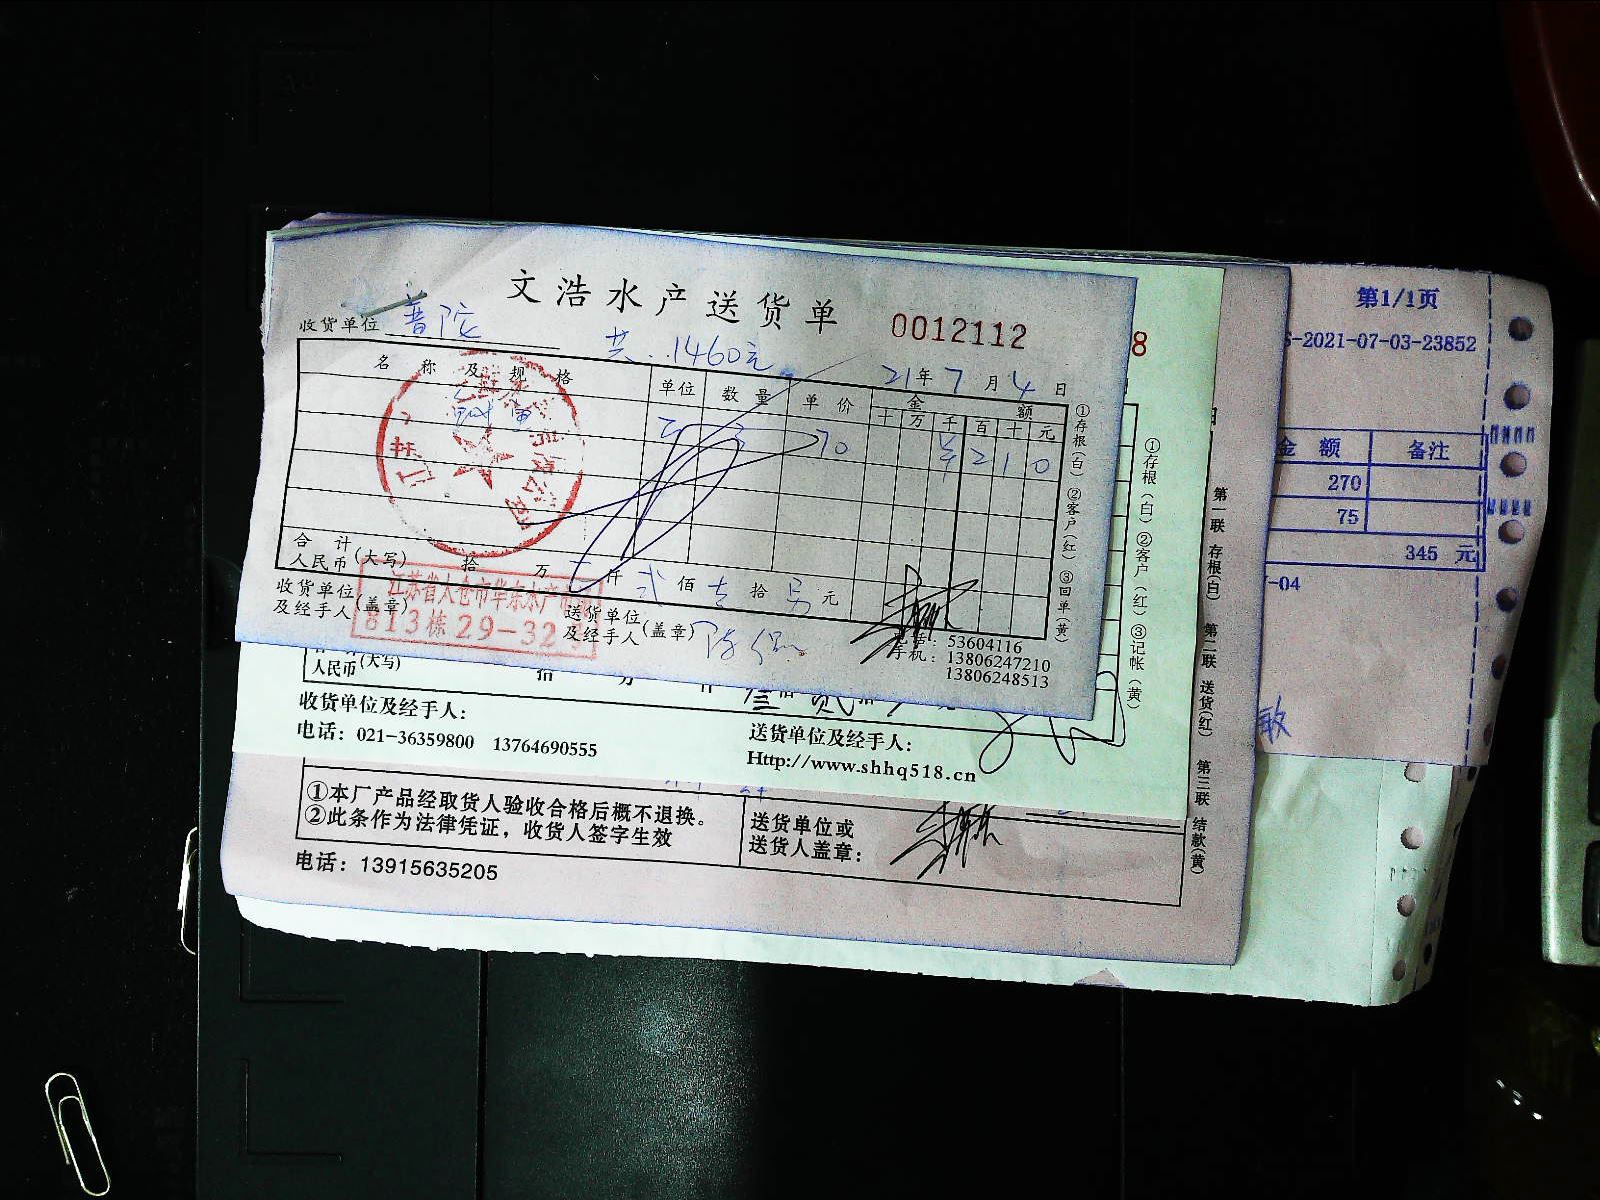 文浩水产送货单
0012112
收货单位 普陀
共 1460元
21年7月4日
名称及规格 单位 数量 单价 金额
十万千百十元
3 70 ¥210
合计
人民币(大写) 拾 万 仟 贰佰壹拾另元
收货单位
及经手人(盖章)
送货单位
及经手人(盖章)
813栋29-32
电话：53604116
手机：13806247210
13806248513
①存根(白) ②客户(红) ③回单(黄)
8
人民币(大写)
收货单位及经手人：
电话：021-36359800 13764690555
送货单位及经手人：
Http://www.shhq518.cn
①存根(白) ②客户(红) ③记帐(黄)
①本厂产品经取货人验收合格后概不退换。
②此条作为法律凭证，收货人签字生效
送货单位或
送货人盖章：
电话：13915635205
第一联 存根(白) 第二联 送货(红) 第三联 结款(黄)
第1/1页
S-2021-07-03-23852
金额 备注
270
75
345 元
-04
敏